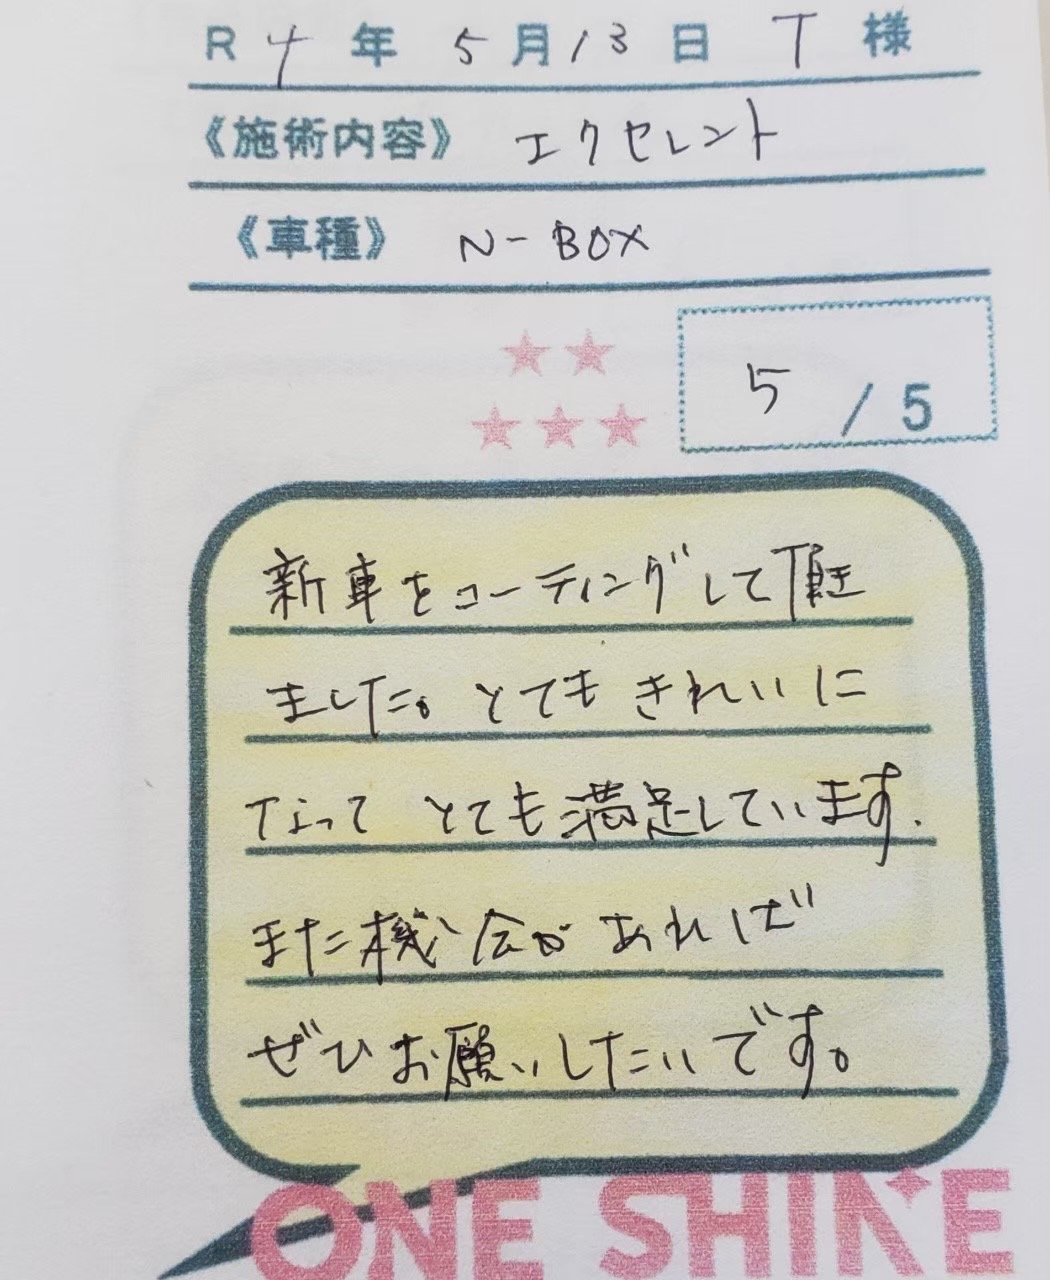 R4年5月13日 T 様
《施術内容》 エクセレント
《車種》 N-BOX
5 / 5
新車をコーティングして頂き
ました。とても きれいに
なって とても満足しています.
また機会が あれば
ぜひお願いしたいです。
ONE SHINE